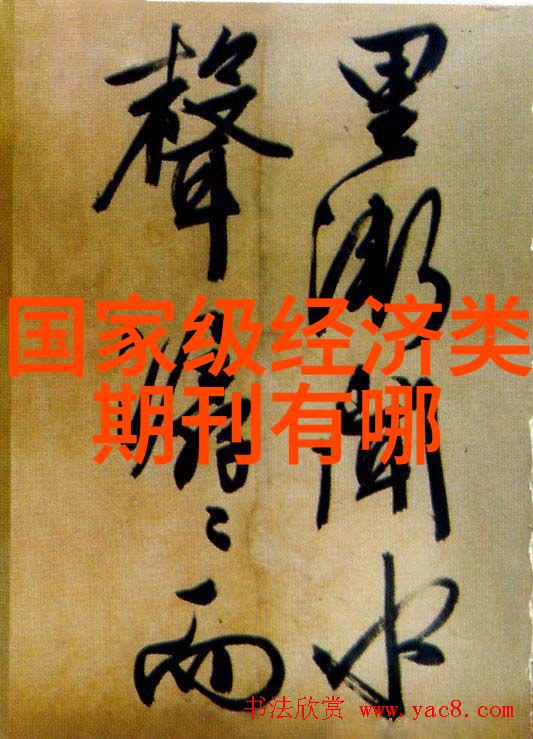 里漸聞水
聲潺〻而
国家级经济类
期刊有哪
书法欣赏 www.yac8.com